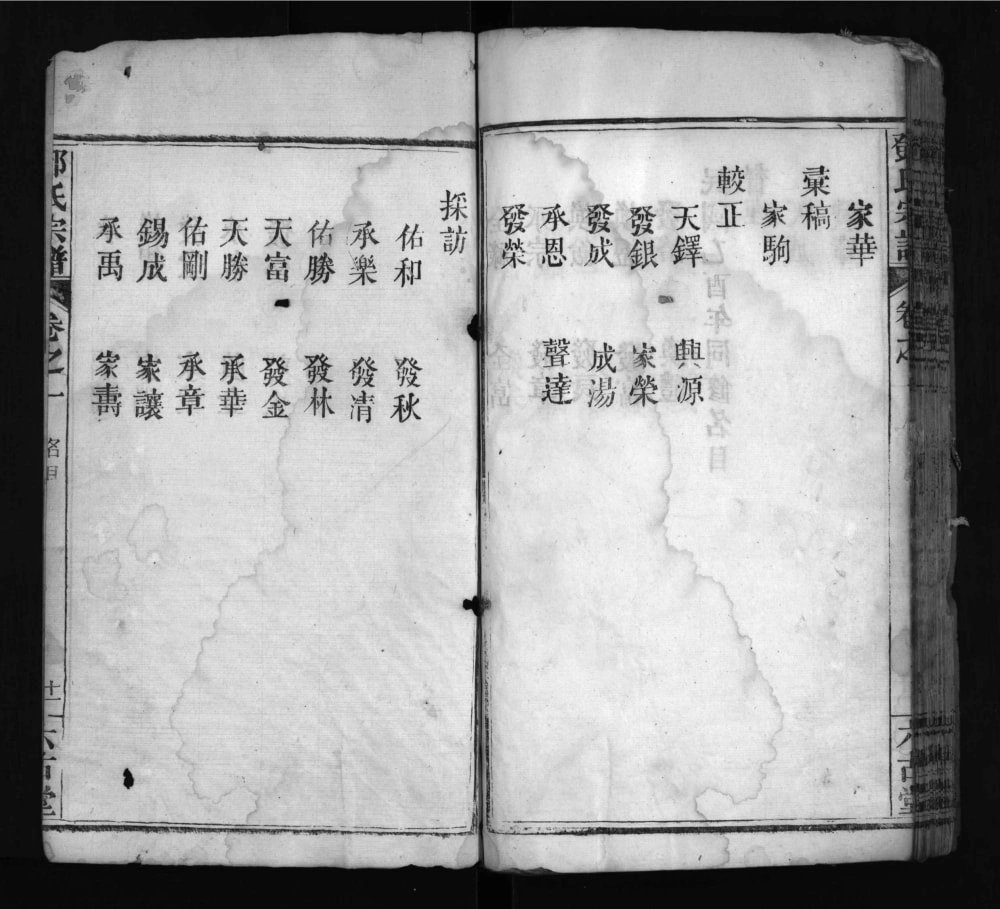 鄧氏宗譜 卷之一
家華
彙稿
家駒
較正
天鐸 興源
發銀 家榮
發成 成湯
承恩 聲達
發榮
民國乙酉年同修名目
採訪
佑和 發秋
承樂 發清
佑勝 發林
天富 發金
天勝 承華
佑剛 承章
錫成 家讓
承禹 家壽
氏宗譜 卷之一 名目 十二